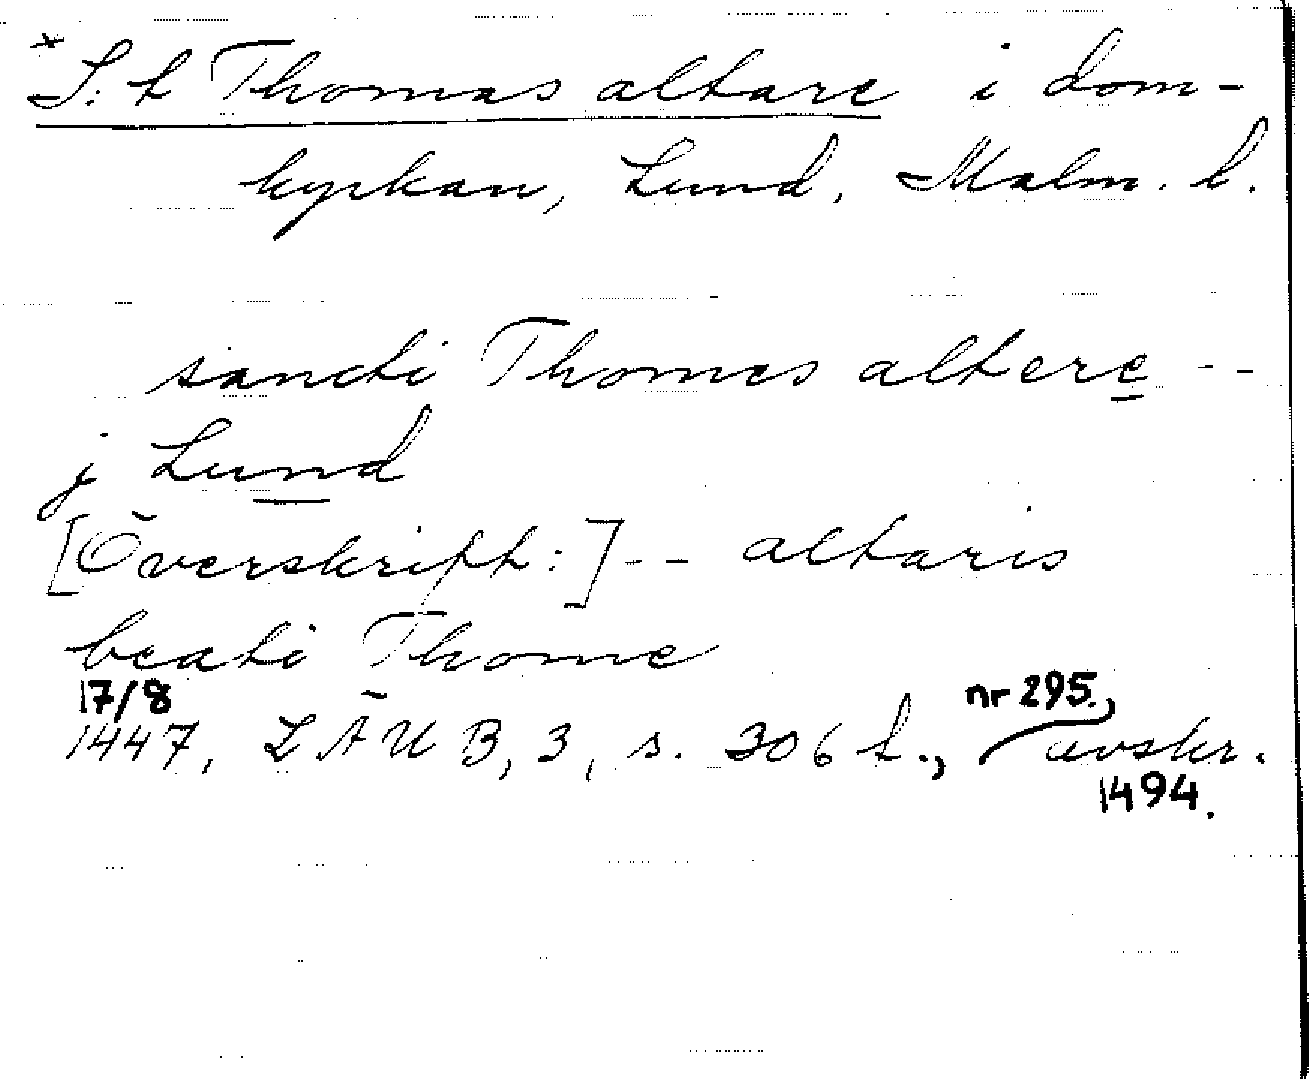 * S:t Thomas altare i dom-
kyrkan, Lund, Malm. l.
sancti Thomes altere --
j Lund
[Överskrift:] -- altaris
beati Thome
17/8 nr 295.,
1447, LÄUB, 3, s. 306 f., avskr.
1494.